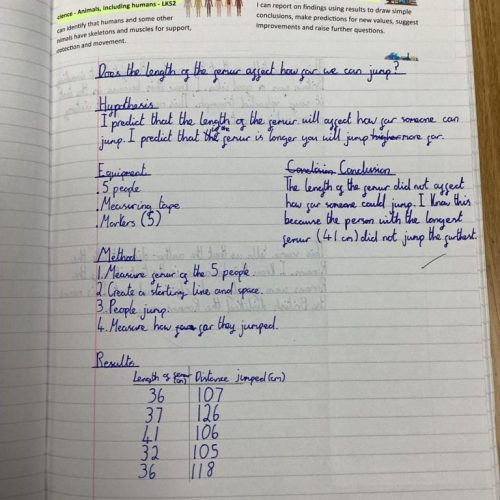 cience - Animals, including humans - LKS2
can identify that humans and some other
nimals have skeletons and muscles for support,
rotection and movement.
I can report on findings using results to draw simple
conclusions, make predictions for new values, suggest
improvements and raise further questions.
Does the length of the femur affect how far we can jump?
Hypothesis
I predict that the length of the femur will affect how far someone can
jump. I predict that if the femur is longer you will jump higher more far.
Equipment
.5 people
.Measuring tape
.Markers (5)
Method
1. Measure femur of the 5 people
2. Create a starting line and space.
3. People jump.
4. Measure how far they jumped.
Conclusion
The length of the femur did not affect
how far someone could jump. I know this
because the person with the longest
femur (41 cm) did not jump the furthest.
Results
Length of femur (cm) Distance jumped (cm)
36 107
37 126
41 106
32 105
36 118